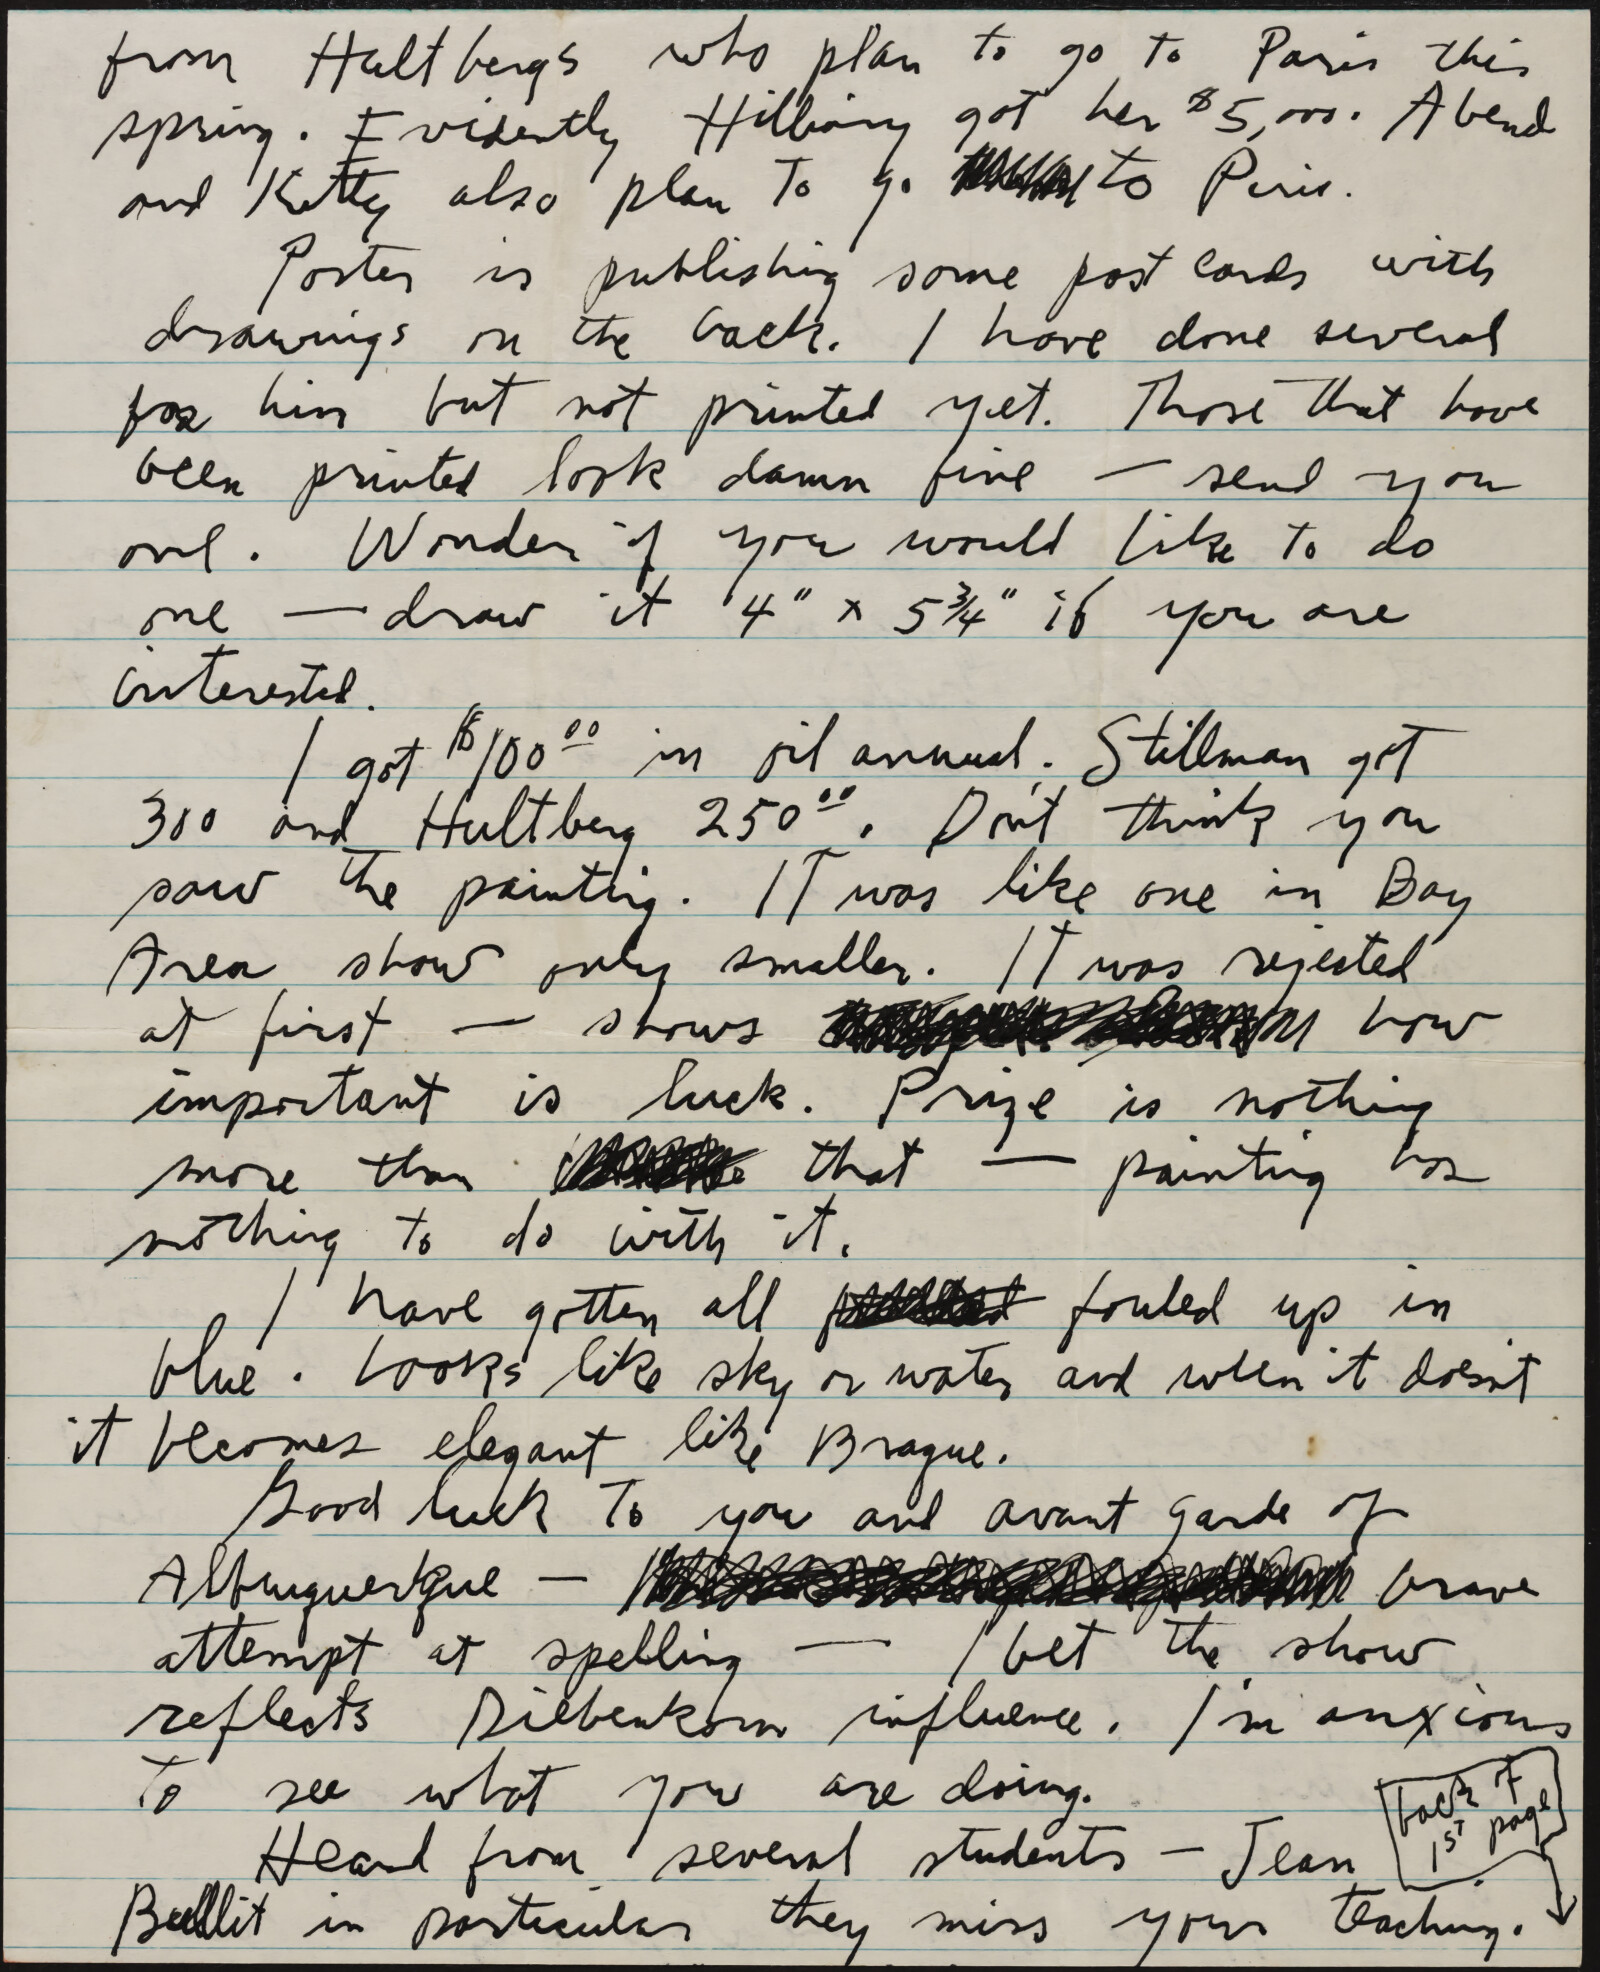 from Hultbergs who plan to go to Paris this
spring. Evidently Hilliary got her $5,000. Abend
and Kitty also plan to go to Paris.
Porter is publishing some post cards with
drawings on the back. I have done several
for him but not printed yet. Those that have
been printed look damn fine — send you
one. Wonder if you would like to do
one — draw it 4" x 5 3/4" if you are
interested.
I got $100.00 in oil annual. Stillman got
300 and Hultberg 250.00. Don't think you
saw the painting. It was like one in Bay
Area show only smaller. It was rejected
at first — shows how
important is luck. Prize is nothing
more than that — painting has
nothing to do with it.
I have gotten all fouled up in
blue. Looks like sky or water and when it doesn't
it becomes elegant like Braque.
Good luck to you and avant garde of
Albuquerque — brave
attempt at spelling — I bet the show
reflects Diebenkorn influence. I'm anxious
to see what you are doing.
Heard from several students — Jean
Bullit in particular they miss your teaching.
back of
1st page